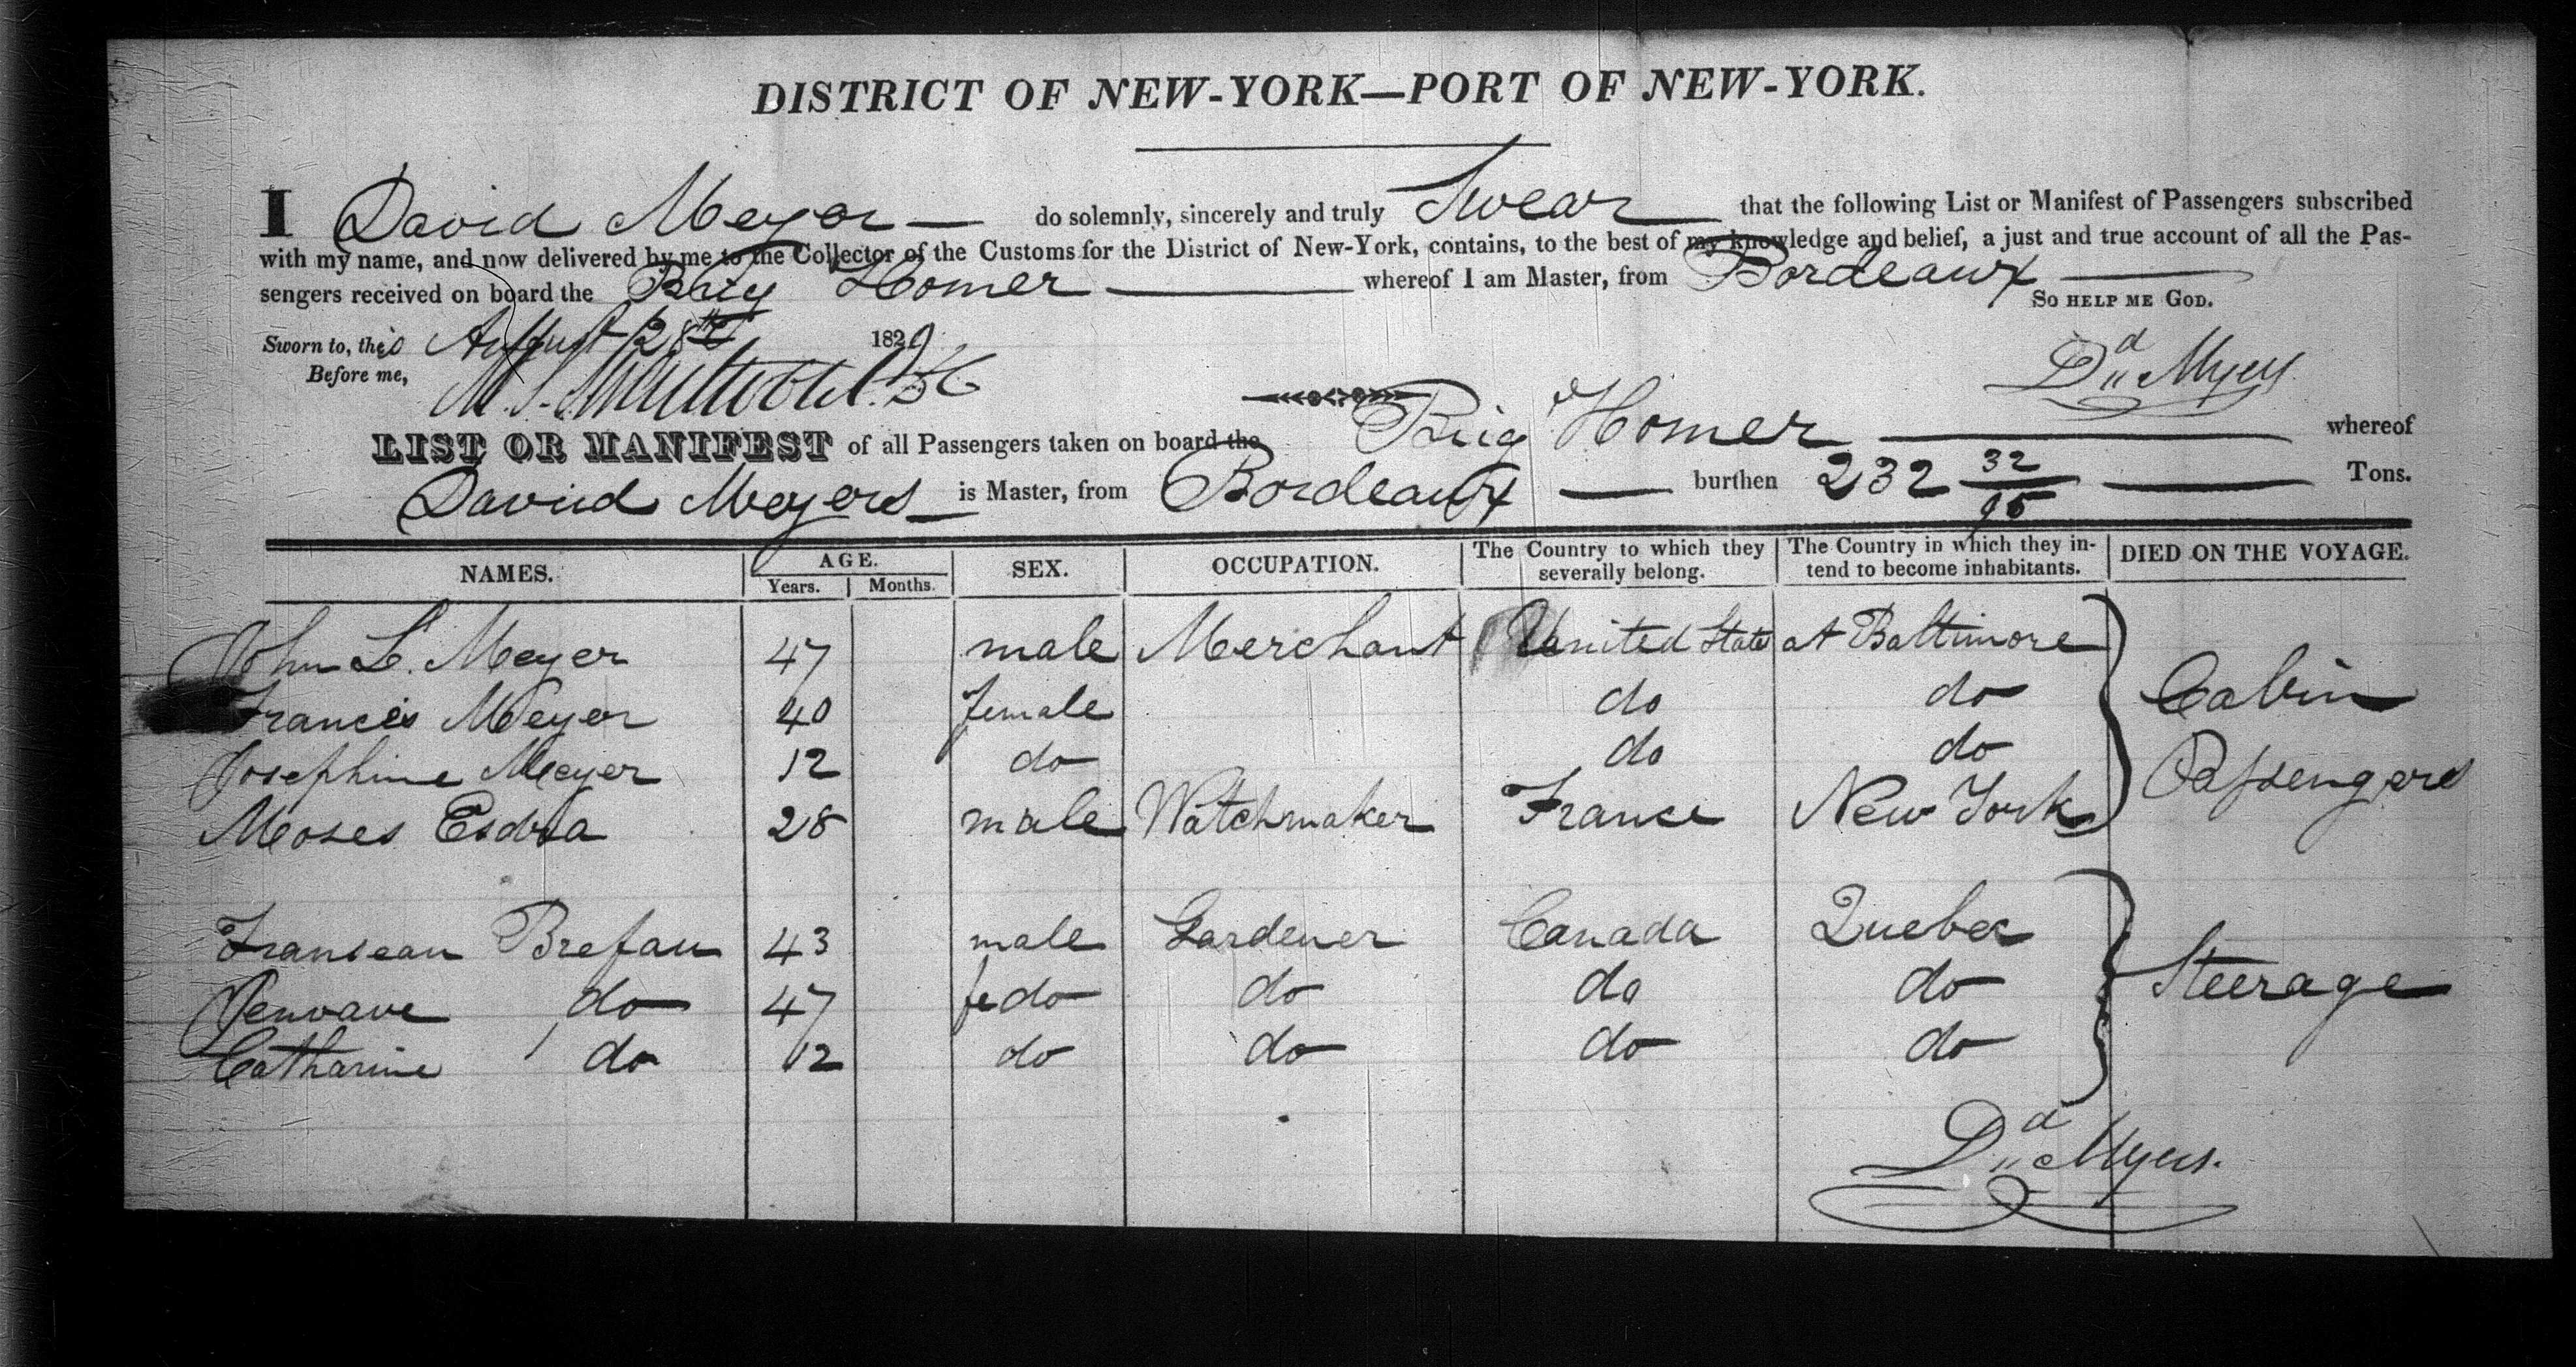 DISTRICT OF NEW-YORK—PORT OF NEW-YORK.
I David Meyer — do solemnly, sincerely and truly Swear that the following List or Manifest of Passengers subscribed
with my name, and now delivered by me to the Collector of the Customs for the District of New-York, contains, to the best of my knowledge and belief, a just and true account of all the Pas-
sengers received on board the Brig Homer whereof I am Master, from Bordeaux
So help me God.
Sworn to, this August 28th 1829
Before me,
Dd Myers
LIST OR MANIFEST of all Passengers taken on board the Brig Homer whereof
David Meyers is Master, from Bordeaux burthen 232 32/95 Tons.
NAMES. AGE. SEX. OCCUPATION. The Country to which they severally belong. The Country in which they in-tend to become inhabitants. DIED ON THE VOYAGE.
Years. Months.
John L. Meyer 47 male Merchant United State at Baltimore
Francis Meyer 40 female do do Cabin
Josephine Meyer 12 do do do Passengers
Moses Esdra 28 male Watchmaker France New York
Franseau Brefau 43 male Gardener Canada Quebec
Jenvave do 47 fe do do do do Steerage
Catharine do 12 do do do do
Dd Myers.